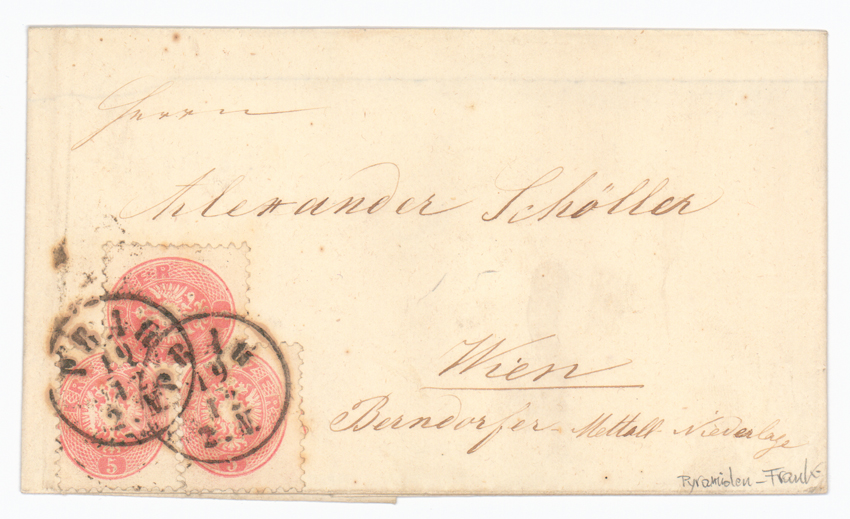 Herrn
Alexander Schöller
Wien
Berndorfer Mettall Niederlage
PRAG
19
12
2.N.
PRAG
19
1
2.N.
5
5
Pyramiden-Frank